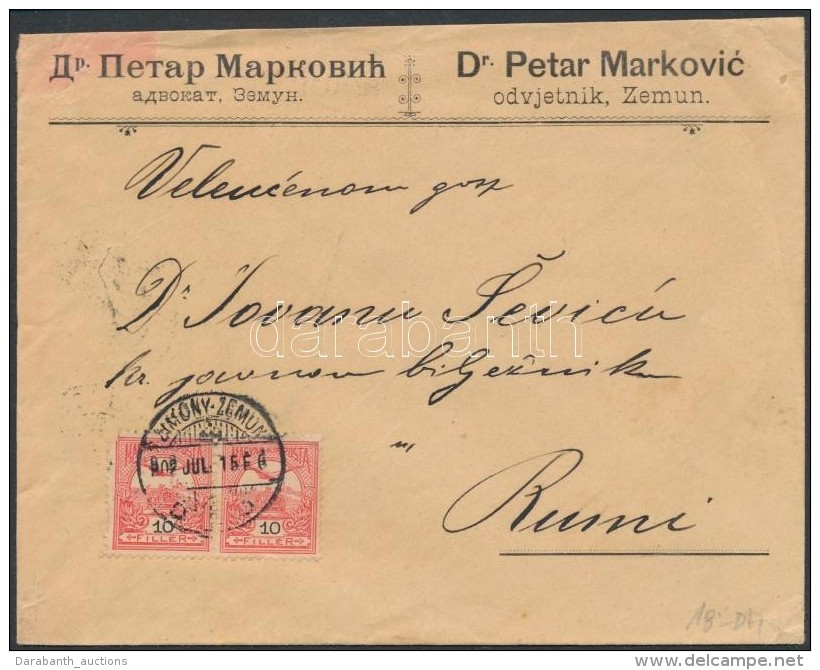 Др. Петар Марковић
адвокат, Земун.
Dr. Petar Marković
odvjetnik, Zemun.
Velenćenom gosp
Dr Jovanu Ševiću
kr. javnom bilježniku
u
Rumi
ZIMONY-ZEMUN
902 JUL. 15
10 10
FILLÉR FILLÉR
darabanth
Darabanth_auctions
delcampe.net